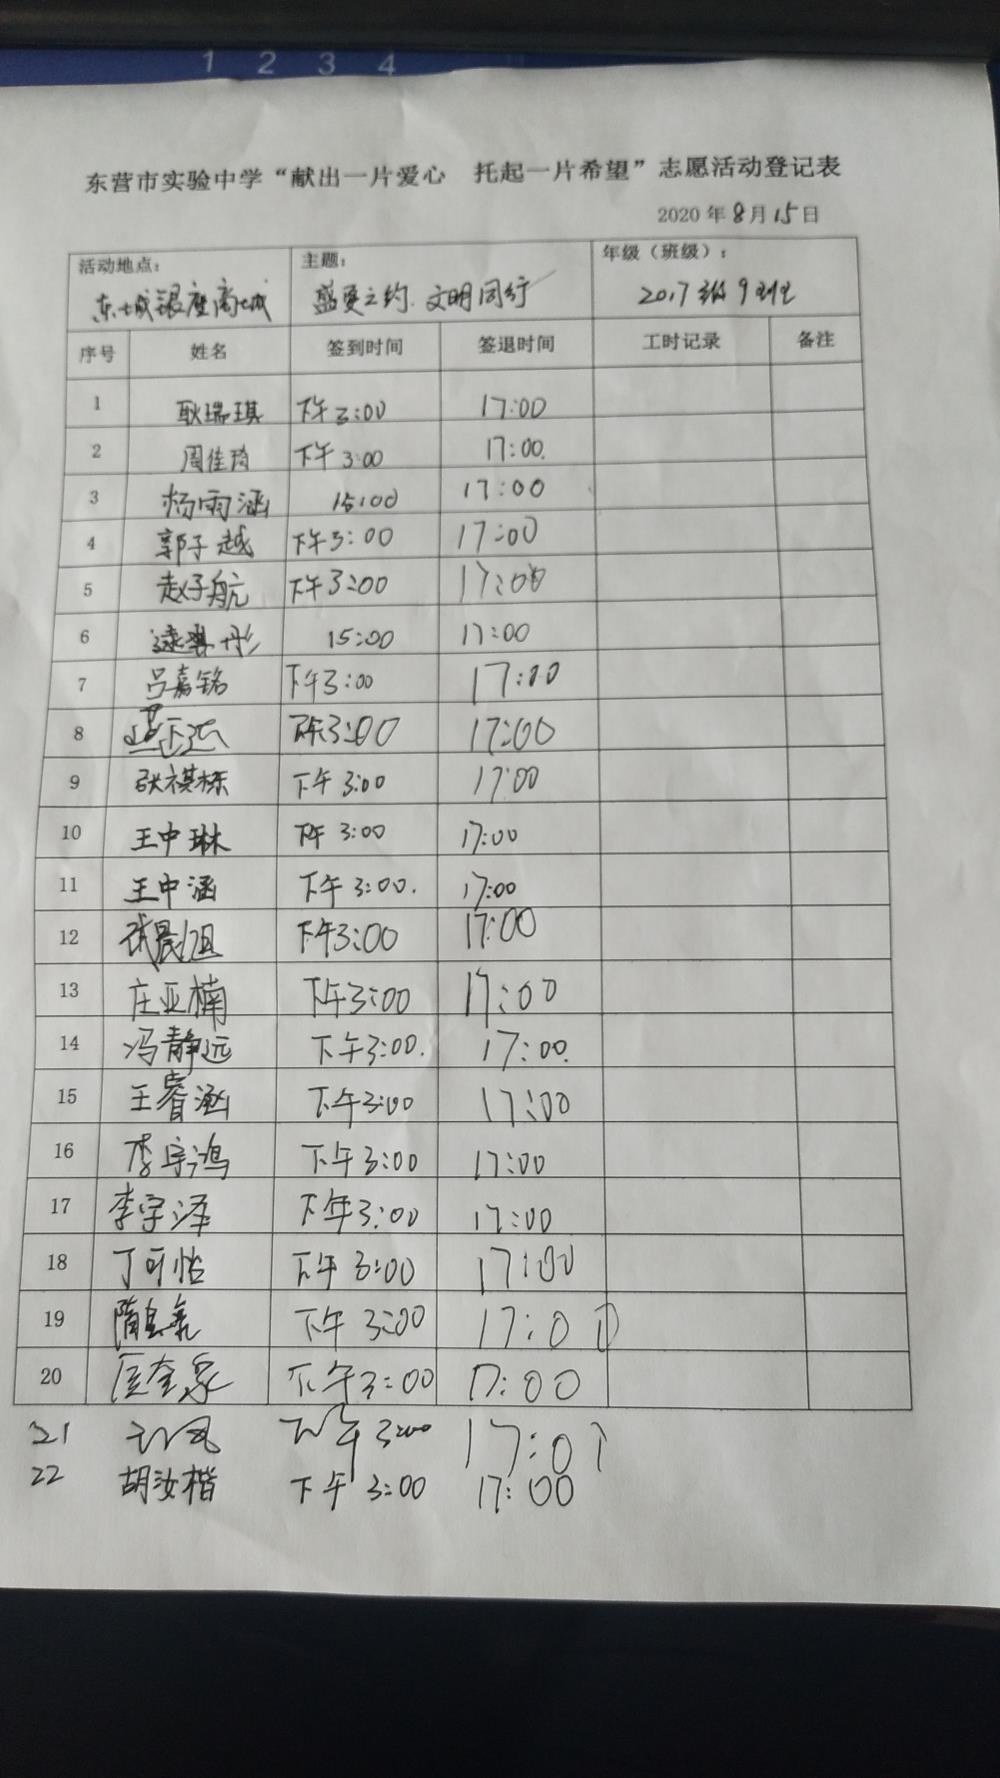 1 2 3 4
东营市实验中学“献出一片爱心 托起一片希望”志愿活动登记表
2020 年 8 月 15 日
活动地点： 主题： 年级（班级）：
东城银座商城 盛夏之约.文明同行 2017级9班
序号 姓名 签到时间 签退时间 工时记录 备注
1 耿瑞琪 下午3:00 17:00
2 周佳琦 下午3:00 17:00.
3 杨雨涵 15:00 17:00
4 郭子越 下午3:00 17:00
5 赵子航 下午3:00 17:00
6 15:00 17:00
7 吕嘉铭 下午3:00 17:00
8 下午3:00 17:00
9 张祺栋 下午3:00 17:00
10 王中琳 下午3:00 17:00
11 王中涵 下午3:00. 17:00
12 下午3:00 17:00
13 庄亚楠 下午3:00 17:00
14 冯静远 下午3:00. 17:00.
15 王睿涵 下午3:00 17:00
16 李宇鸿 下午3:00 17:00
17 李宇泽 下午3:00 17:00
18 丁可怡 下午3:00 17:00
19 下午3:00 17:00
20 下午3:00 17:00
21 下午3:00 17:0
22 胡汝楷 下午3:00 17:00